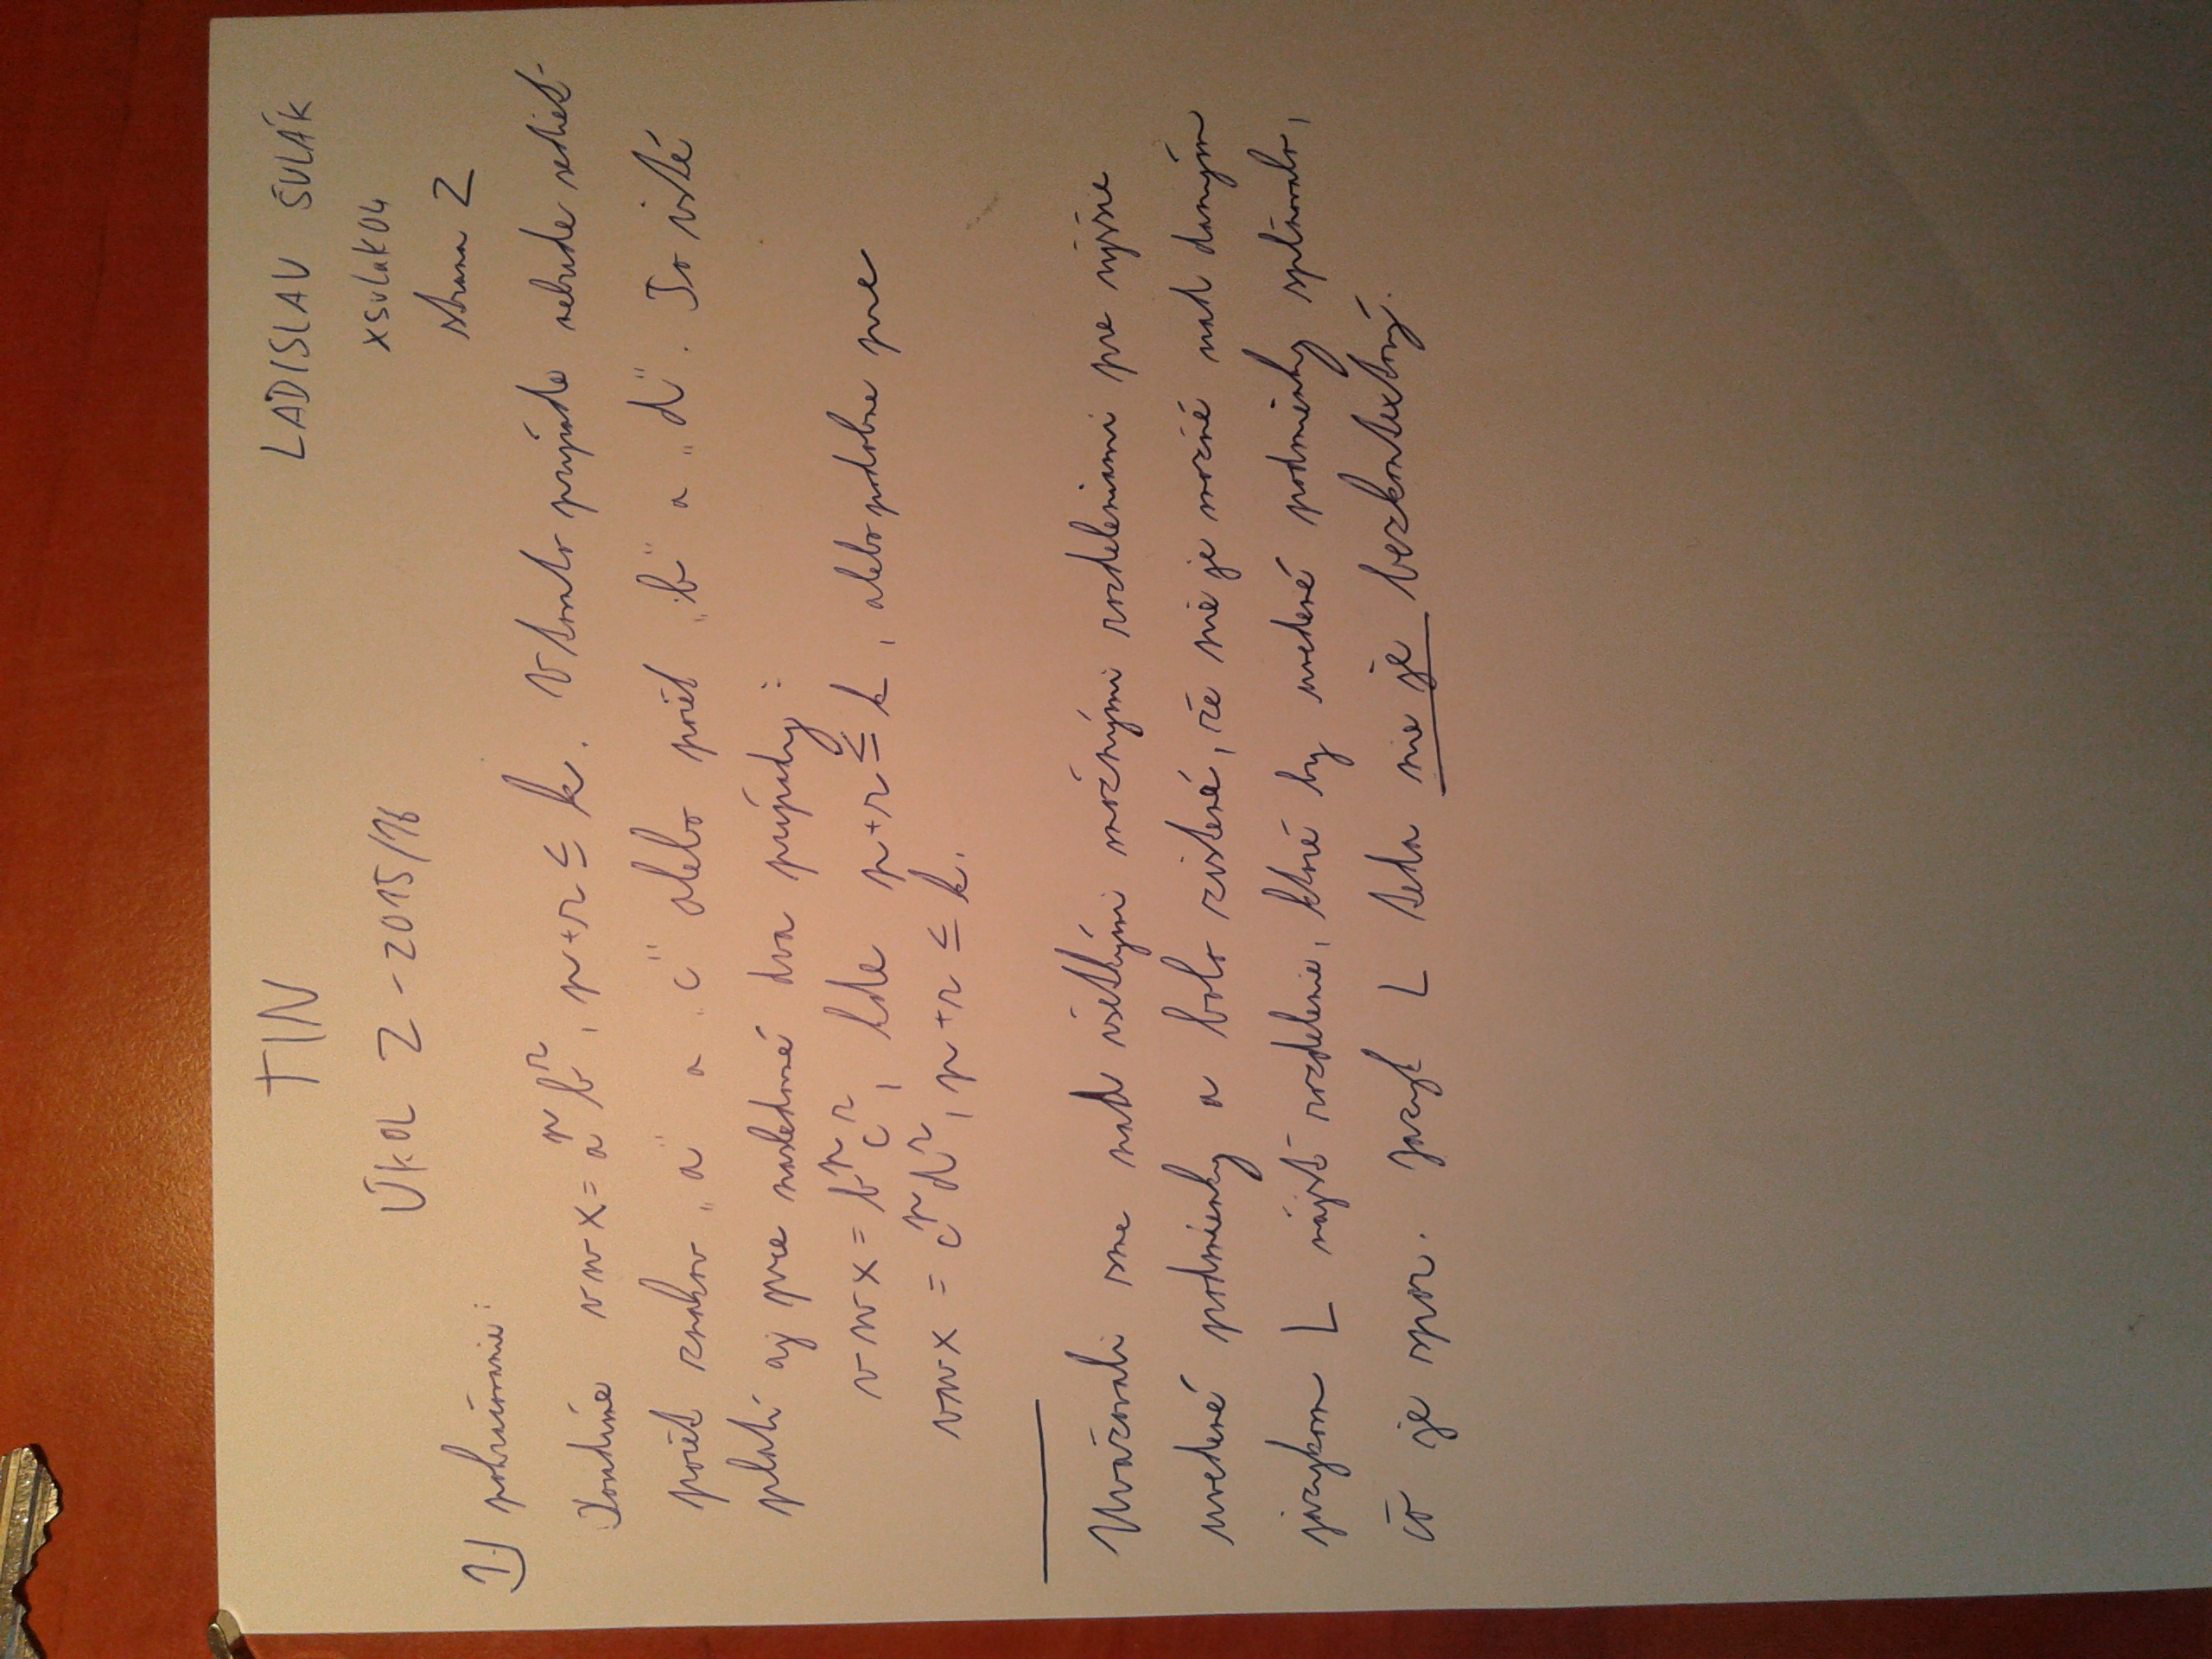 TIN
LADISLAV ŠULÁK
ÚKOL 2 - 2015/16
xsulak04
strana 2
1.) pokračovanie:
vwx = a^p b^r, p+r ≤ k. V tomto prípade nebude sedieť
počet znakov „a" a „c" alebo počet „b" a „d". To isté
platí aj pre nasledovné dva prípady:
vwx = b^p c^r, kde p+r ≤ k, alebo podobne pre
vwx = c^p d^r, p+r ≤ k.
Uvažovali sme nad všetkými možnými rozdeleniami pre vyššie
uvedené podmienky a bolo zistené, že nie je možné nad daným
jazykom L nájsť rozdelenie, ktoré by uvedené podmienky splňovalo,
čo je spor. Jazyk L teda nie je bezkontextový.